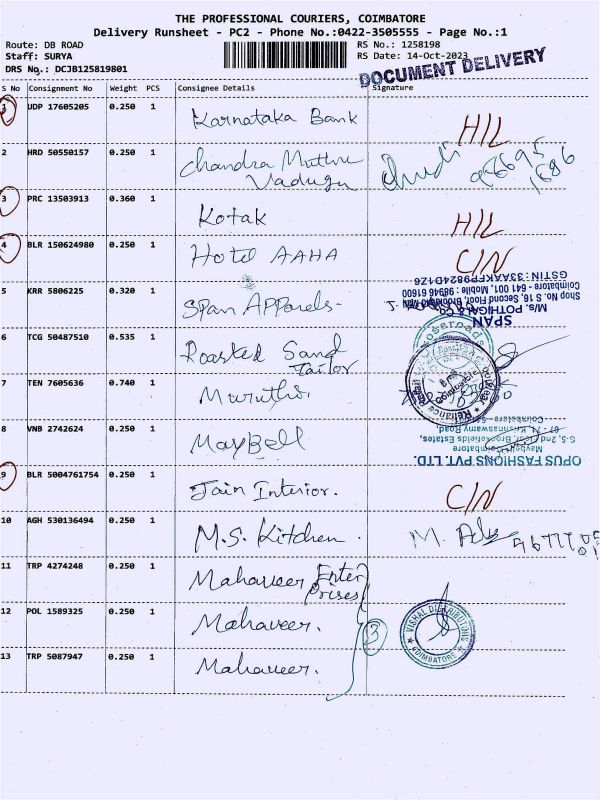 THE PROFESSIONAL COURIERS, COIMBATORE
Delivery Runsheet - PC2 - Phone No.:0422-3505555 - Page No.:1
Route: DB ROAD RS No.: 1258198
Staff: SURYA RS Date: 14-Oct-2023
DRS No.: DCJB125819801
DOCUMENT DELIVERY
S No Consignment No Weight PCS Consignee Details Signature
1 UDP 17605205 0.250 1 Karnataka Bank H/L
2 HRD 50550157 0.250 1 Chandra Muthu
Vadugu
3 PRC 13503913 0.360 1 Kotak H/L
4 BLR 150624980 0.250 1 Hotel AAHA C/N
GSTIN: 33AAKFP9824D1Z6
Coimbatore - 641 001, Mobile : 98946 61600
Shop No S 16, Second Floor, Brookefields
M/s. POTHIGAI & Co
SPAN
5 KRR 5806225 0.320 1 Span Apparels-
6 TCG 50487510 0.535 1 Roasted Sand
Tailor
7 TEN 7605636 0.740 1 Maruthi
Reliance
8 VNB 2742624 0.250 1 MayBell
67 - 71, Krishnaswamy Road,
S-5, 2nd Floor, Brookefields Estates,
Maybell
OPUS FASHIONS PVT. LTD.
9 BLR 5004761754 0.250 1 Jain Interior. C/N
10 AGH 530136494 0.250 1 M.S. Kitchen M.
11 TRP 4274248 0.250 1 Mahaveer Enter
Prises
12 POL 1589325 0.250 1 Mahaveer. 3
VISHAL DISTRIBUTORS
COIMBATORE
13 TRP 5087947 0.250 1 Mahaveer.